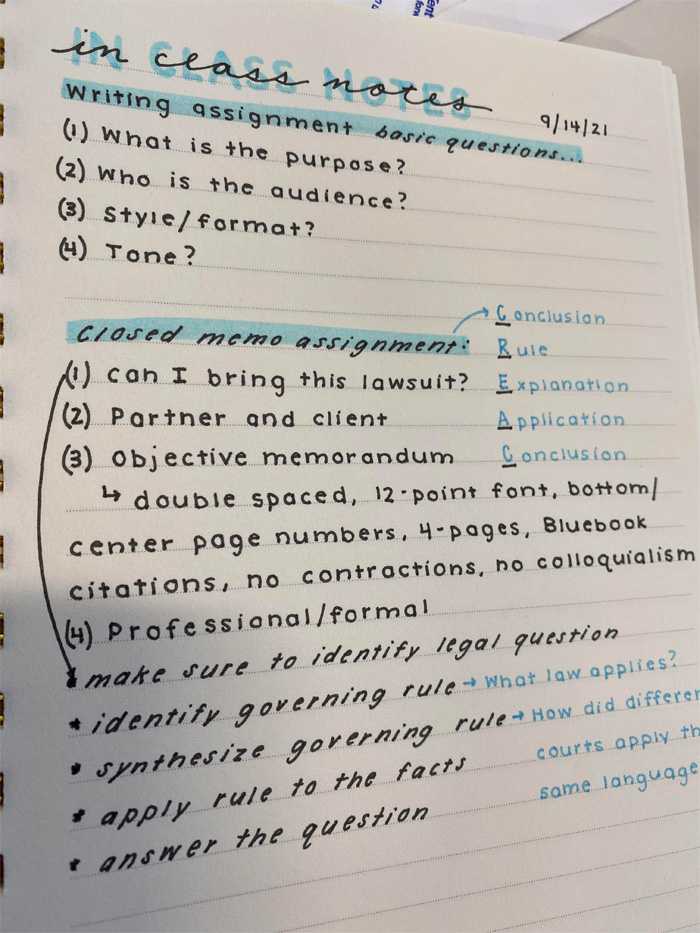 IN CLASS NOTES
in class notes
9/14/21
Writing assignment basic questions...
(1) What is the purpose?
(2) Who is the audience?
(3) Style/format?
(4) Tone?
Closed memo assignment:
(1) can I bring this lawsuit?
(2) Partner and client
(3) Objective memorandum
↳ double spaced, 12-point font, bottom/
center page numbers, 4-pages, Bluebook
citations, no contractions, no colloquialism
(4) Professional/formal
Conclusion
Rule
Explanation
Application
Conclusion
* make sure to identify legal question
* identify governing rule → What law applies?
* synthesize governing rule → How did differen
courts apply th
same language
* apply rule to the facts
* answer the question